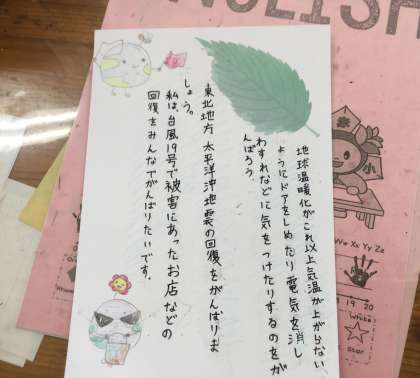 地球温暖化がこれ以上気温が上がらない
ようにドアをしめたり電気を消し
わすれなどに気をつけたりするのをが
んばろう。
東北地方太平洋沖地震の回復をがんばりま
しょう。
私は、台風19号で被害にあったお店などの
回復をみんなでがんばりたいです。
ENGLISH
We Xx Yy Zz
19 20
White
Star